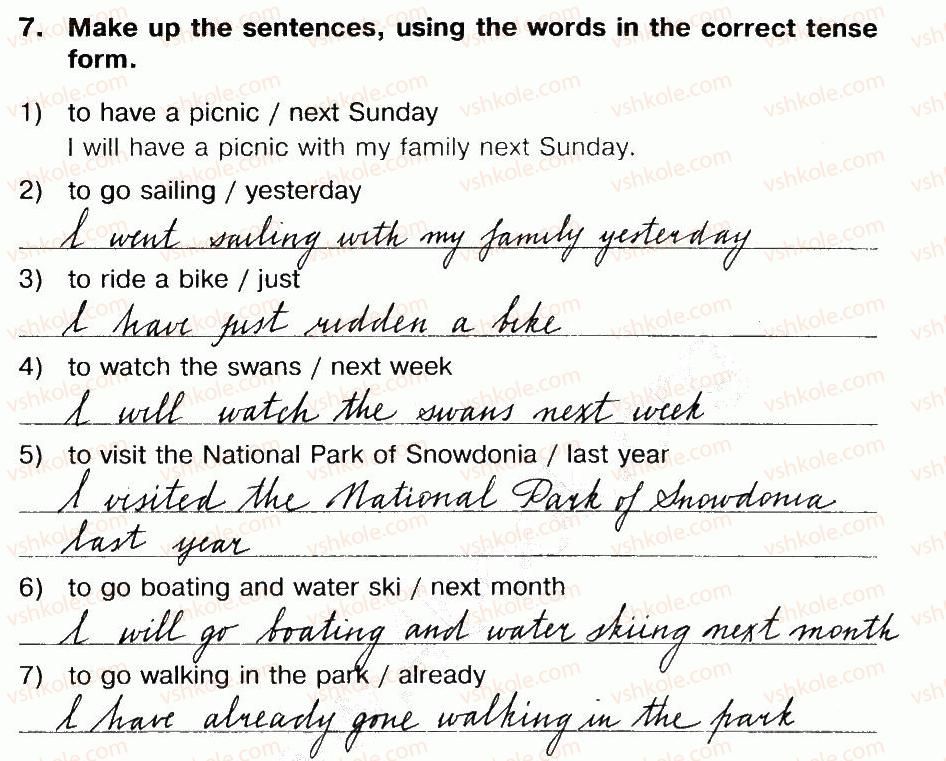 7. Make up the sentences, using the words in the correct tense
form.
1) to have a picnic / next Sunday
I will have a picnic with my family next Sunday.
2) to go sailing / yesterday
I went sailing with my family yesterday
3) to ride a bike / just
I have just ridden a bike
4) to watch the swans / next week
I will watch the swans next week
5) to visit the National Park of Snowdonia / last year
I visited the National Park of Snowdonia
last year
6) to go boating and water ski / next month
I will go boating and water skiing next month
7) to go walking in the park / already
I have already gone walking in the park